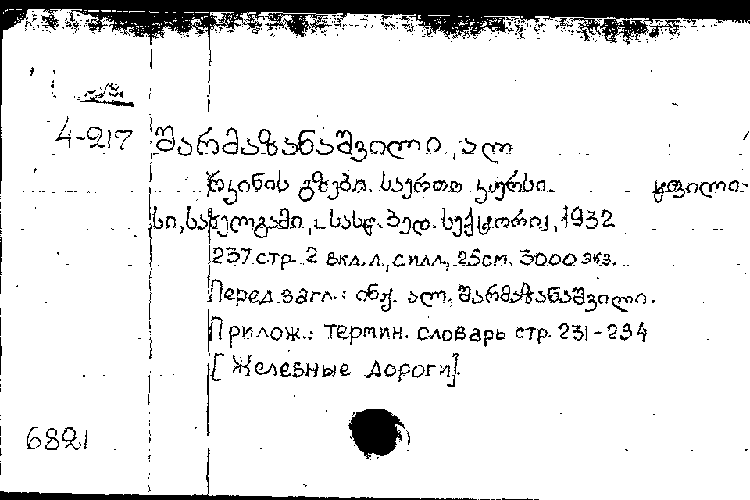 4-217 შარმაზანაშვილი, ალ
რკინის გზები. საერთო კურსი. ტფილი-
სი, სახელგამი, - სასწ. პედ. სექტორი, 1932
237 стр. 2 вкл.л., с илл., 25см. 3000 экз.
Перед загл.: ინჟ. ალ. შარმაზანაშვილი.
Прилож.: термин. словарь стр. 231-234
[Железные дороги].
6821